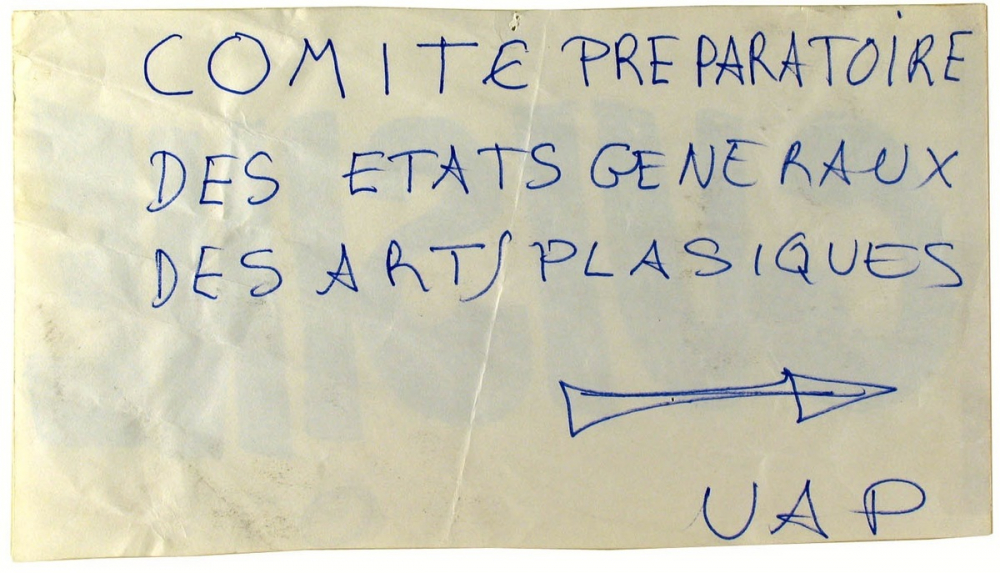 COMITE PREPARATOIRE
DES ETATS GENERAUX
DES ARTS PLASIQUES
UAP